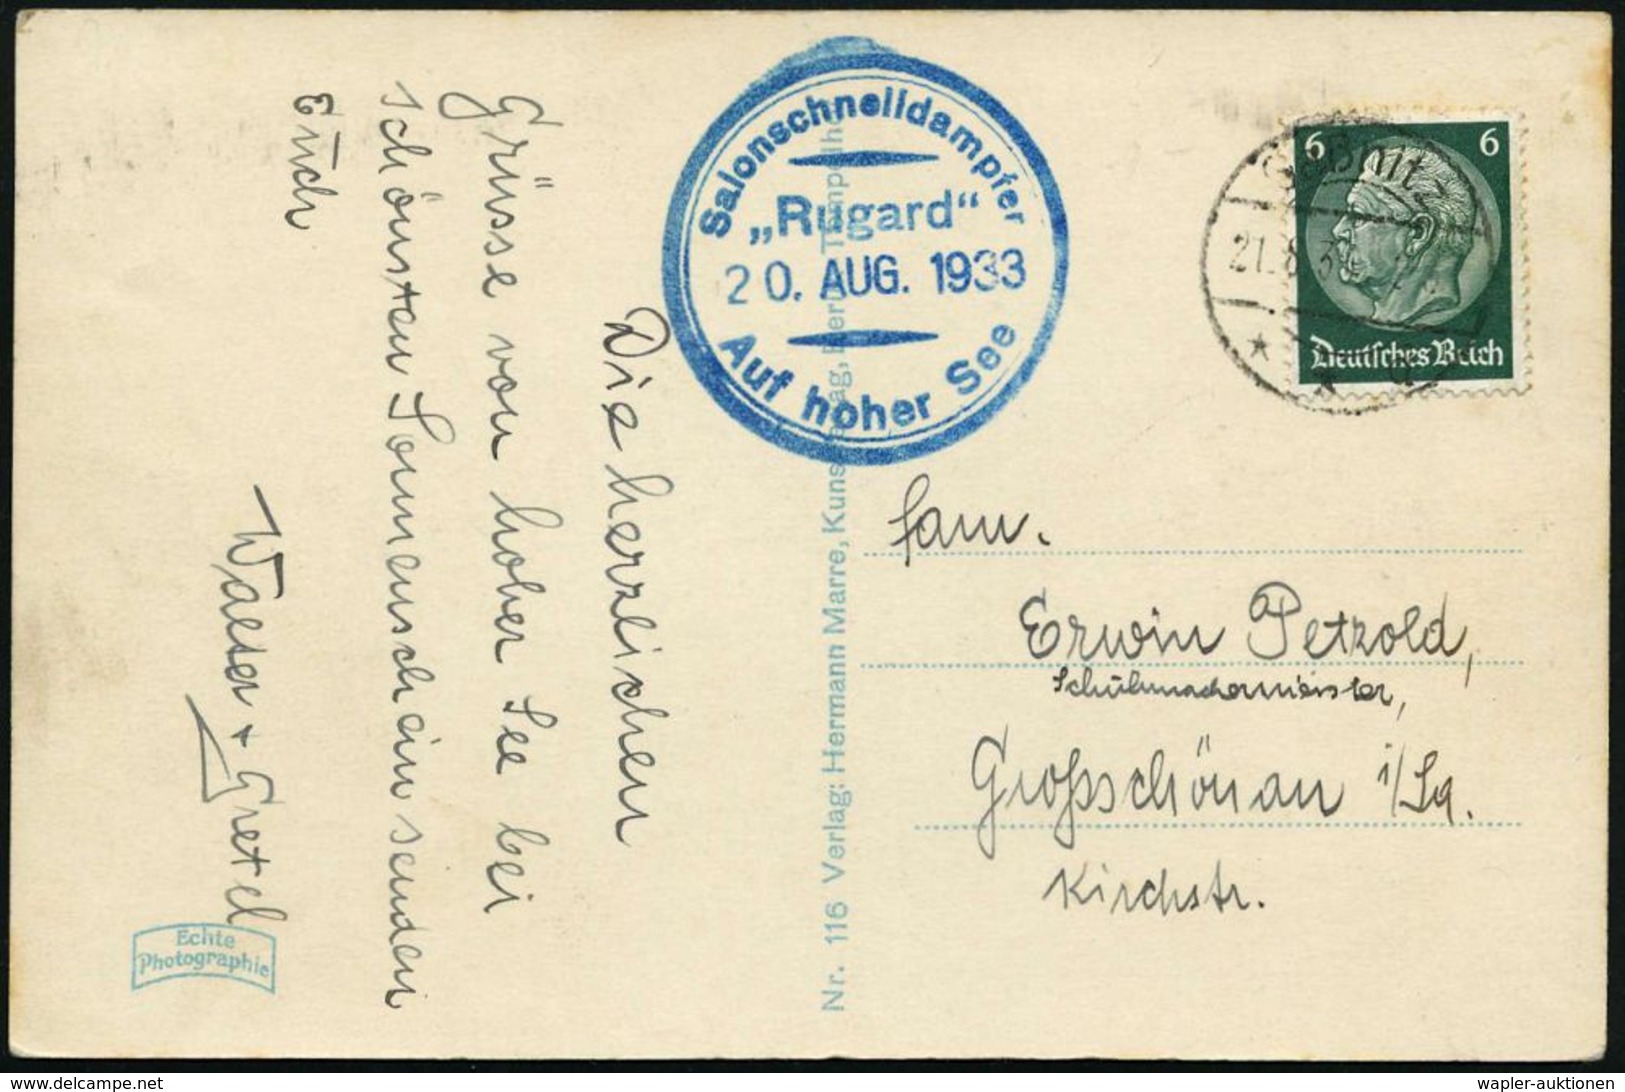 Die herzlichen
Grüsse von hoher See bei
schönsten Sonnenschein sendet
Euch
Walter + Gretel
Echte
Photographie
Nr. 116 Verlag: Hermann Marre,
Salonschnelldampfer
„Rugard“
20. AUG. 1933
Auf hoher See
6 6
Deutsches Reich
21.8.33
Fam.
Erwin Petzold,
Schuhmachermeister,
Großschönau i/Sa.
Kirchstr.
wapler-auktionen